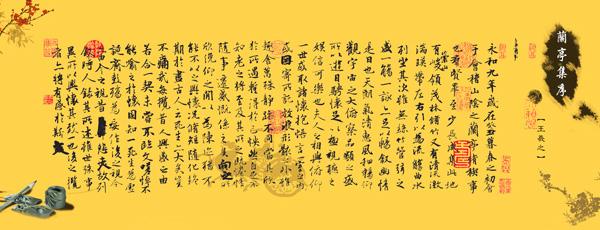 蘭亭集序
【王羲之】
永和九年歲在癸丑暮春之初會
于會稽山陰之蘭亭脩稧事
也群賢畢至少長咸集此地
有崇山峻領茂林脩竹又有清流激
湍映帶左右引以為流觴曲水
列坐其次雖無絲竹管弦之
盛一觴一詠亦足以暢敘幽情
是日也天朗氣清惠風和暢仰
觀宇宙之大俯察品類之盛
所以遊目騁懷足以極視聽之
娛信可樂也夫人之相與俯仰
一世或取諸懷抱悟言一室之內
或因寄所託放浪形骸之外雖
趣舍萬殊靜躁不同當其欣
於所遇蹔得於己怏然自足不
知老之將至及其所之既惓情
隨事遷感慨係之矣向之所
欣俛仰之閒以為陳迹猶不
能不以之興懷況脩短隨化終
期於盡古人云死生亦大矣豈
不痛哉每攬昔人興感之由
若合一契未嘗不臨文嗟悼不
能喻之於懷固知一死生為虛
誕齊彭殤為妄作後之視今
亦由今之視昔悲夫故列
敘時人錄其所述雖世殊事
異所以興懷其致一也後之攬
者亦將有感於斯